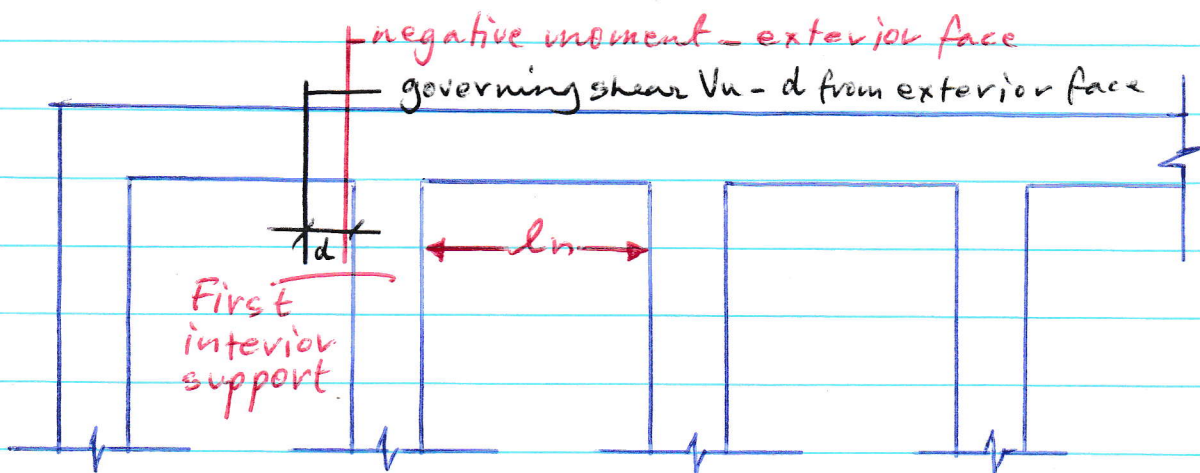 negative moment - exterior face
governing shear Vu - d from exterior face
d
ln
First
interior
support